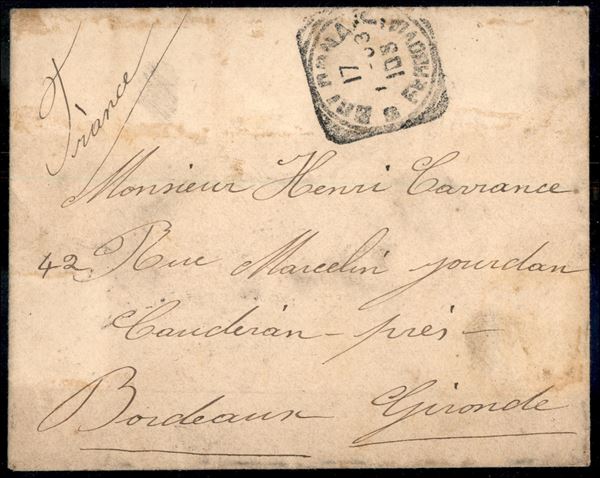 France
Monsieur Henri Carrance
42 Rue Marcelin jourdan
Caudéran - près -
Bordeaux Gironde
17